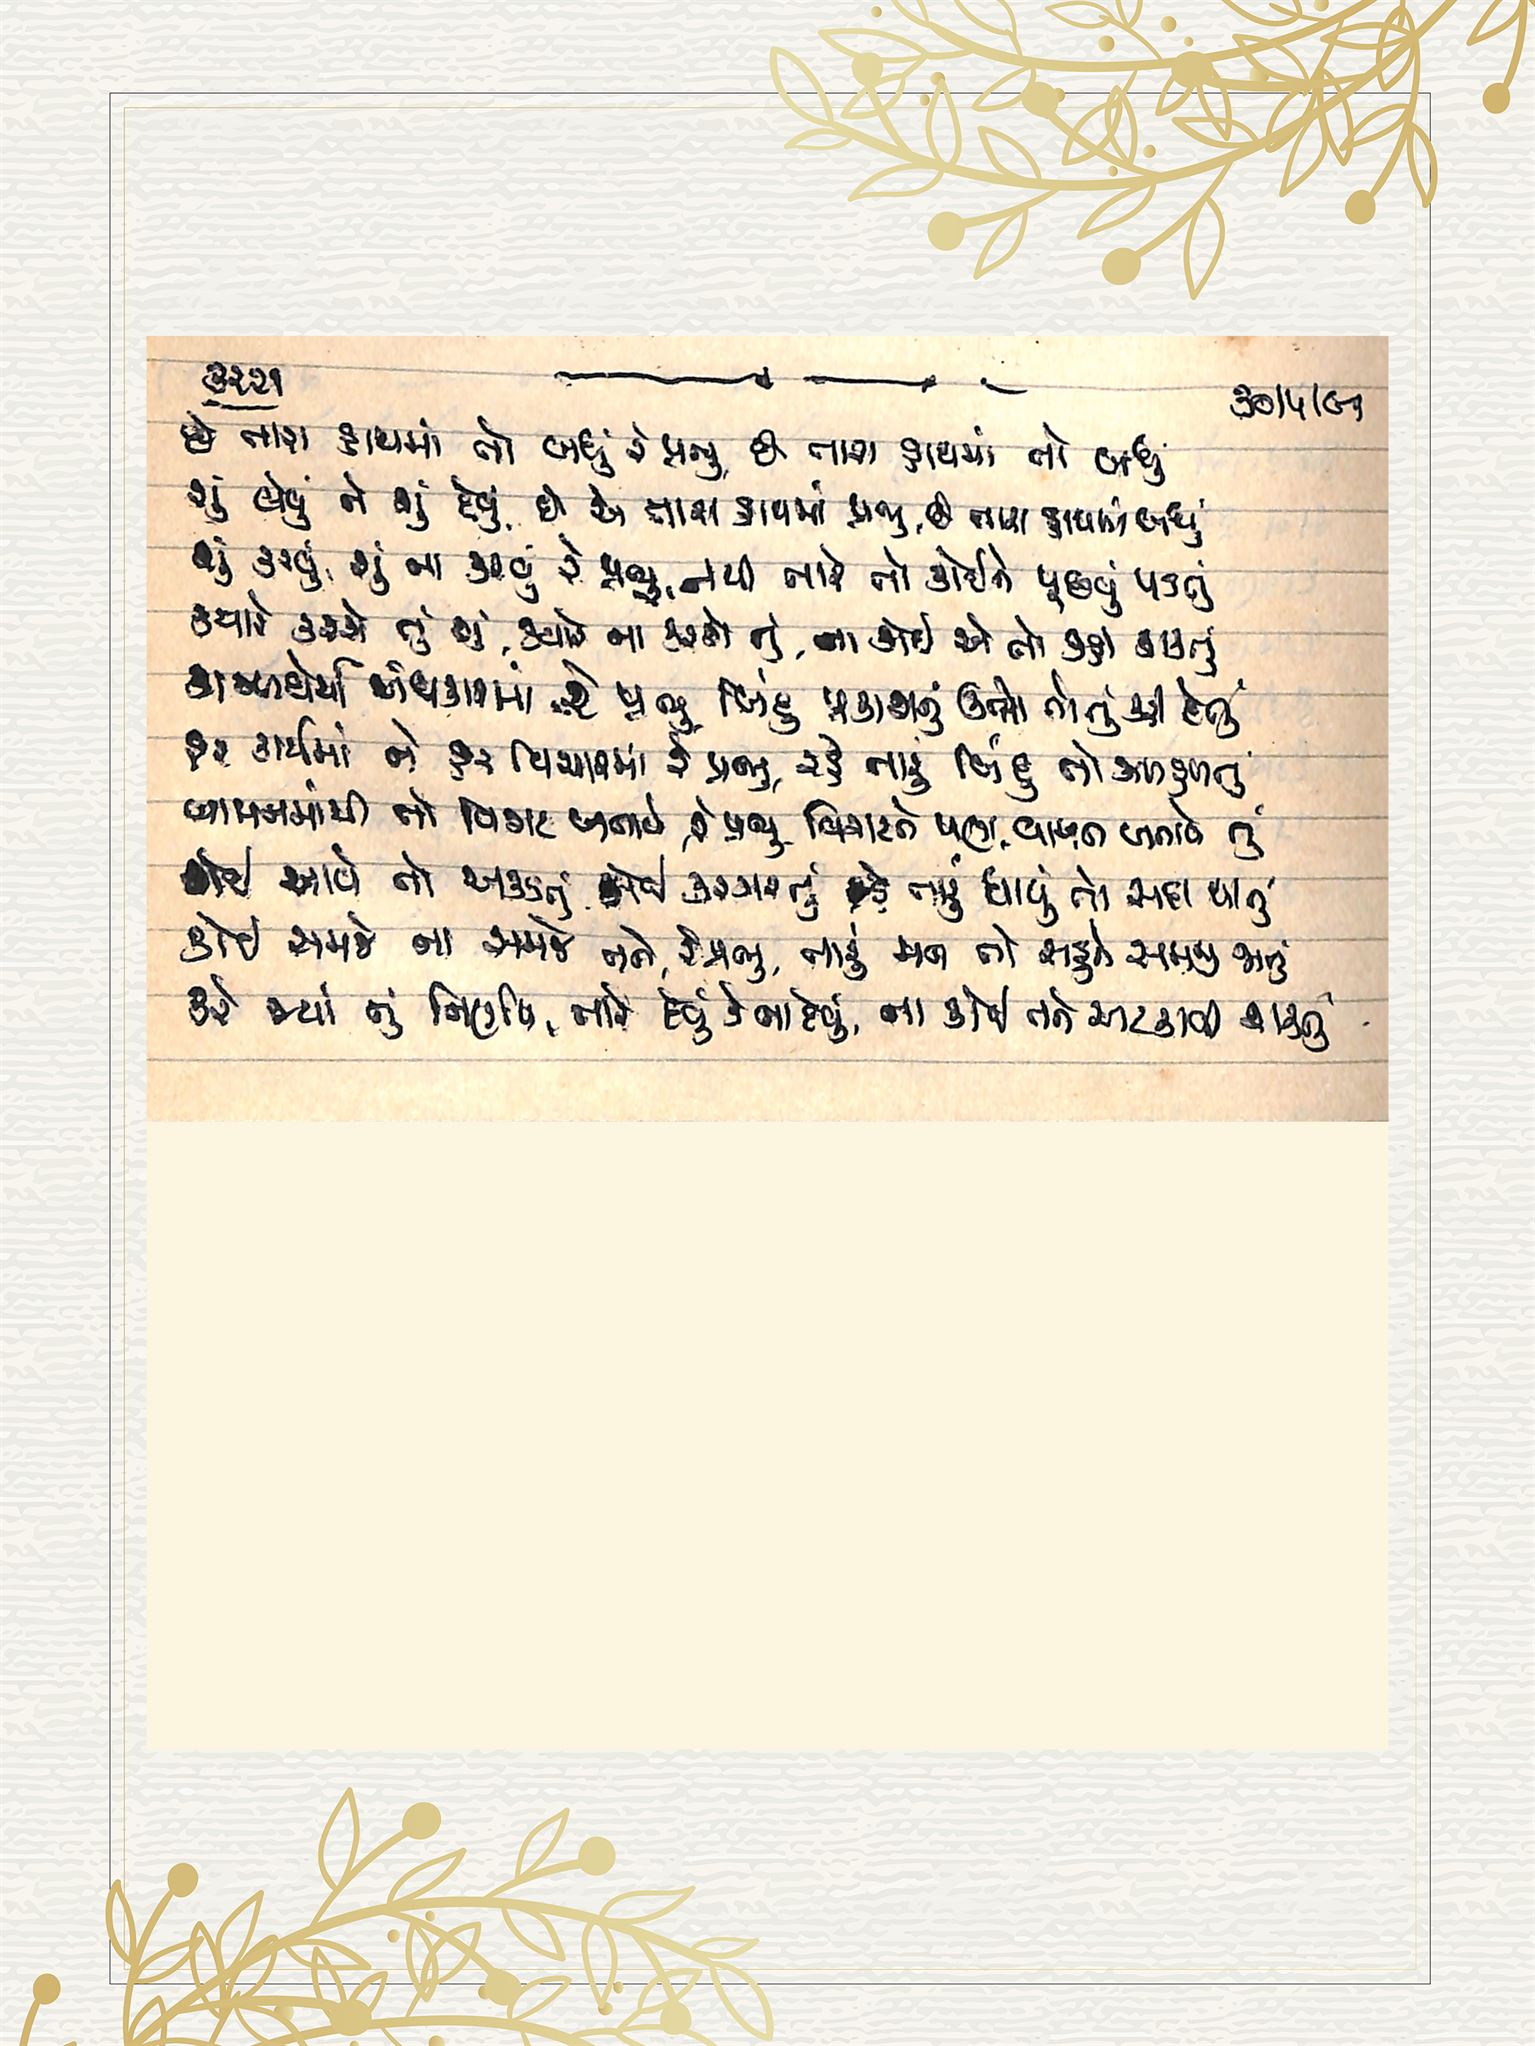 ૩૨૨૧
૩૦/૫/૯૧
છે તારા હાથમાં તો બધું રે પ્રભુ, છે તારા હાથમાં તો બધું
શું લેવું ને શું દેવું, છે એ તારા હાથમાં પ્રભુ, છે તારા હાથમાં બધું
શું કરવું, શું ના કરવું રે પ્રભુ, નથી તારે તો કોઈને પૂછવું પડતું
ક્યારે કરશે તું શું, ક્યારે ના કરશે તું, ના કોઈ એ તો કહી શકતું
કાજળઘેર્યા અંધકારમાં રે પ્રભુ બિંદુ પ્રકાશનું ઉત્તમ તો તું દેતું
હર કાર્યમાં ને હર વિચારમાં રે પ્રભુ, રહે તારું બિંદુ તો ઝળહળતું
વામનમાંથી તો વિરાટ બનાવે રે પ્રભુ વિરાટને પણ, વામન બનાવે તું
કોઈ આવે તો અકડતું કોઈ કરગરતું પડે તારું ધાર્યું તો સદા થાતું
કોઈ સમજે ના સમજે તને, રે પ્રભુ, તારું મન તો સહુને સમજી જાતું
કરે જ્યાં તું નિર્ણય, તારે દેવું કે ના દેવું, ના કોઈ તને અટકાવી શકતું